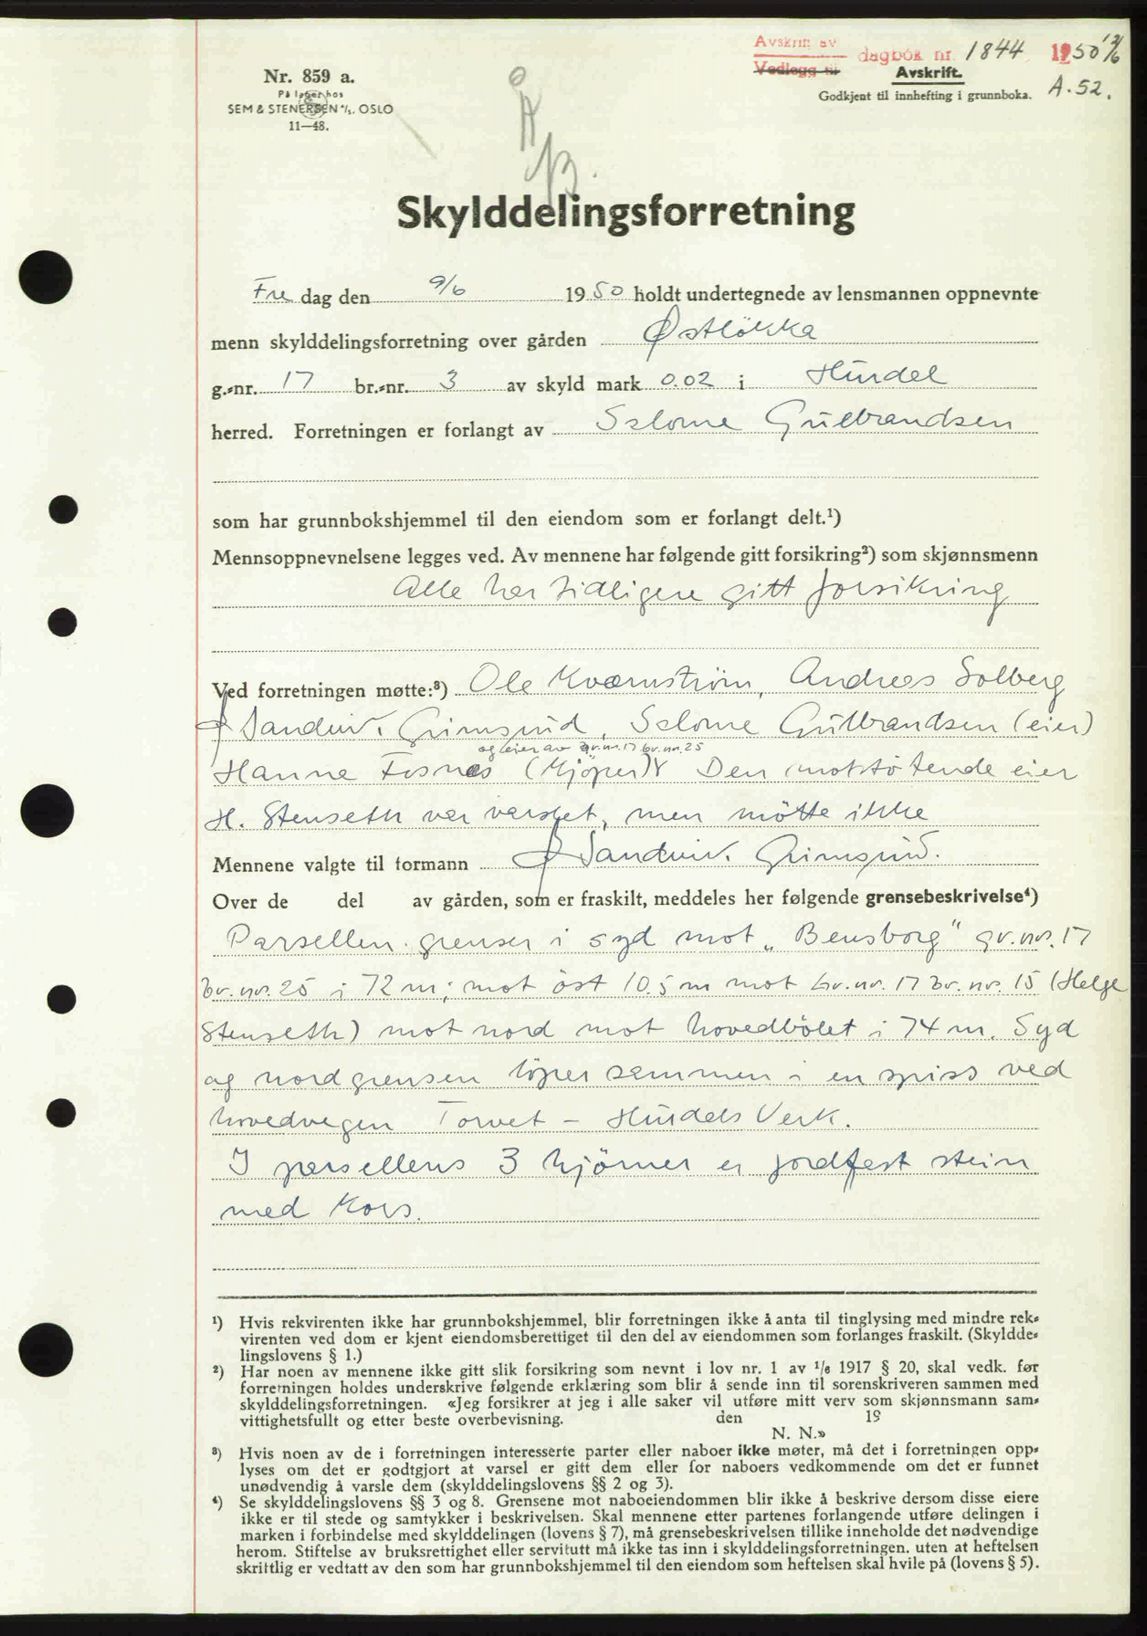 Avskrift av
Vedlegg til
dagbok nr. 1844 1950 12/6
Avskrift.
Godkjent til innhefting i grunnboka.
A. 52.
Nr. 859 a.
På lager hos
SEM & STENERSEN A/S. OSLO
11—48.
B.
Skylddelingsforretning
Fre dag den 9/6 1950 holdt undertegnede av lensmannen oppnevnte
menn skylddelingsforretning over gården Østløkka
g.-nr. 17 br.-nr. 3 av skyld mark 0.02 i Hurdal
herred. Forretningen er forlangt av Salome Gulbrandsen
som har grunnbokshjemmel til den eiendom som er forlangt delt.¹)
Mennsoppnevnelsene legges ved. Av mennene har følgende gitt forsikring²) som skjønnsmenn
Alle har tidligere gitt forsikring
Ved forretningen møtte:³) Ole Kværnstrøm, Andreas Solberg
Sandvir. Grimsrud, Salome Gulbrandsen (eier)
og eier av gr.nr. 17 br.nr. 25
Hanne Fosnæs (Kjöper) Den motstötende eier
H. Stenseth var varslet, men mötte ikke
Mennene valgte til formann Sandvir. Grimsrud.
Over de del av gården, som er fraskilt, meddeles her følgende grensebeskrivelse⁴)
Parsellen grenser i syd mot „Bensborg" gr.nr. 17
br.nr. 25 i 72 m; mot öst 10.5 m mot Gr.nr. 17 br.nr. 15 (Helge
Stenseth) mot nord mot hovedbölet i 74 m. Syd
og nordgrensen löper sammen i en spiss ved
hovedvegen Torvet – Hurdals Verk.
I parsellens 3 hjörner er jordfast stein
med Kors.
¹) Hvis rekvirenten ikke har grunnbokshjemmel, blir forretningen ikke å anta til tinglysing med mindre rek-
virenten ved dom er kjent eiendomsberettiget til den del av eiendommen som forlanges fraskilt. (Skyldde-
lingslovens § 1.)
²) Har noen av mennene ikke gitt slik forsikring som nevnt i lov nr. 1 av 1/6 1917 § 20, skal vedk. før
forretningen holdes underskrive følgende erklæring som blir å sende inn til sorenskriveren sammen med
skylddelingsforretningen. «Jeg forsikrer at jeg i alle saker vil utføre mitt verv som skjønnsmann sam-
vittighetsfullt og etter beste overbevisning. den 19
N. N.»
³) Hvis noen av de i forretningen interesserte parter eller naboer ikke møter, må det i forretningen opp-
lyses om det er godtgjort at varsel er gitt dem eller for naboers vedkommende om det er funnet
unødvendig å varsle dem (skylddelingslovens §§ 2 og 3).
⁴) Se skylddelingslovens §§ 3 og 8. Grensene mot naboeiendommen blir ikke å beskrive dersom disse eiere
ikke er til stede og samtykker i beskrivelsen. Skal mennene etter partenes forlangende utføre delingen i
marken i forbindelse med skylddelingen (lovens § 7), må grensebeskrivelsen tillike inneholde det nødvendige
herom. Stiftelse av bruksrettighet eller servitutt må ikke tas inn i skylddelingsforretningen. uten at heftelsen
skriftlig er vedtatt av den som har grunnbokshjemmel til den eiendom som heftelsen skal hvile på (lovens § 5).